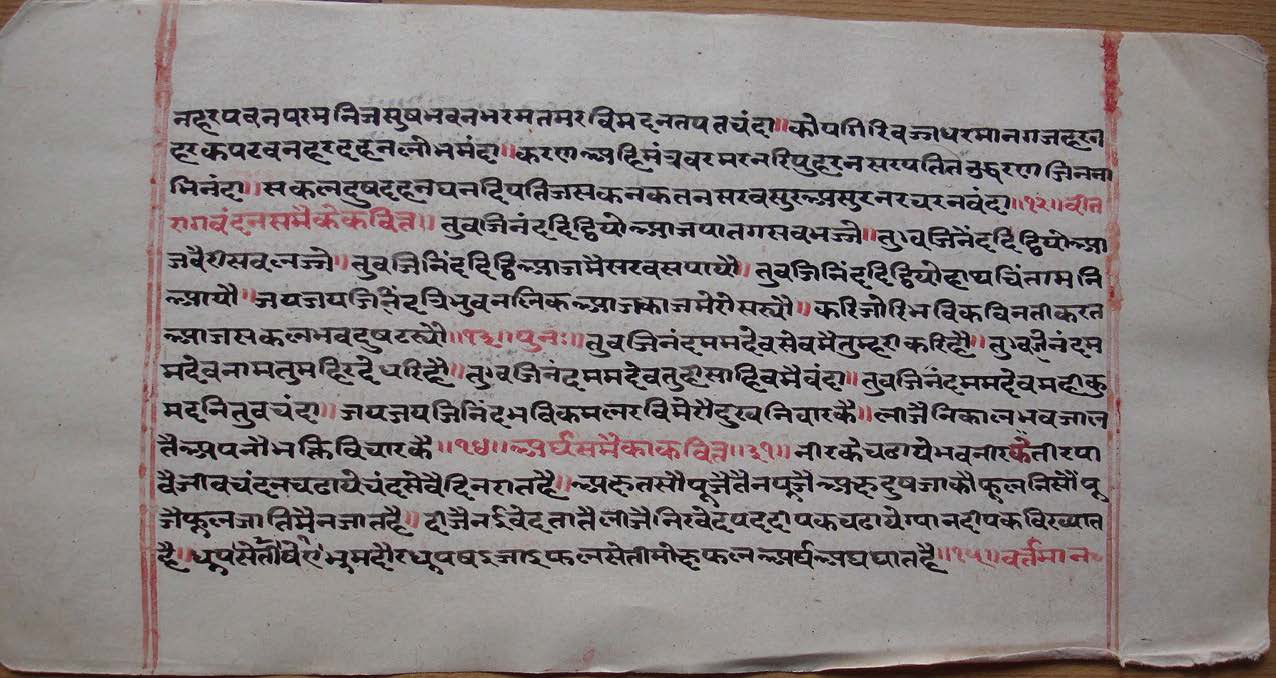 नहरपवनपरमनिजसुषभवनभरमतमरविमदनतपतचंदा॥कोपगिरिवज्रधरमानगजहरन
हरकपटवनहरदहनलोभमंदा॥करणअहिमंत्रवरमरनरिपुहरनसरपतितउद्धरणजिनना
भिनंदा॥सकलदुषदहनघनदिपतिजसकनकतनसरवसुरअसुरनरचरनवंदा॥१२॥वीत
रागवंदनसमैकेकवित्त॥तुवजिनंददिट्ठियोआजपातगसवभज्जे॥तुवजिनंददिट्ठियोआ
जवैरीसवलज्जे॥तुवजिनिंददिट्ठिआजमैसरवसपायौ॥तुवजिनिंददिट्ठियोहाथचिंतामनि
आयौ॥जयजयजिनिंदत्रिभुवनतिकआजकाजमेरोसस्यौ॥करिजोरिभविकविनतीकरत
आजसकलभवदुषटस्यौ॥१३॥पुनः॥तुवजिनंदममदेवसेवमैतुम्हराकरिहौ॥तुवजिनंदम
मदेवनामतुमहिरदेधरिहौ॥तुवजिनंदममदेवतुहीसाहिवमैवंदा॥तुवजिनंदममदेवमहीकु
मदनितुवचंदा॥जयजयजिनिंदभविकमलरविमेरौदुखनिवारकै॥लीजैनिकालभवजाल
तैअपनौभक्तिविचारकै॥१४॥अर्घसमैकाकवित्त॥३१॥नीरकेचढायेभवनीरकेतीरपा
वैजीवचंदनचढायेचंदसेवैदिनरातहै॥अक्षतसौपूजैतैनपूजैअक्षदुषजाकौफूलनिसौंपू
जैफूलजातिमैनजातहै॥दीजैनईवेदतातैलीजैनिरवेदपददीपकचढायेग्यानदीपकविख्यात
है॥धूपसेतीषेएभ्रमदौरधूपषइजाइफलसेतीमोक्षफलअर्घअघघातहै॥१५॥वर्तमान